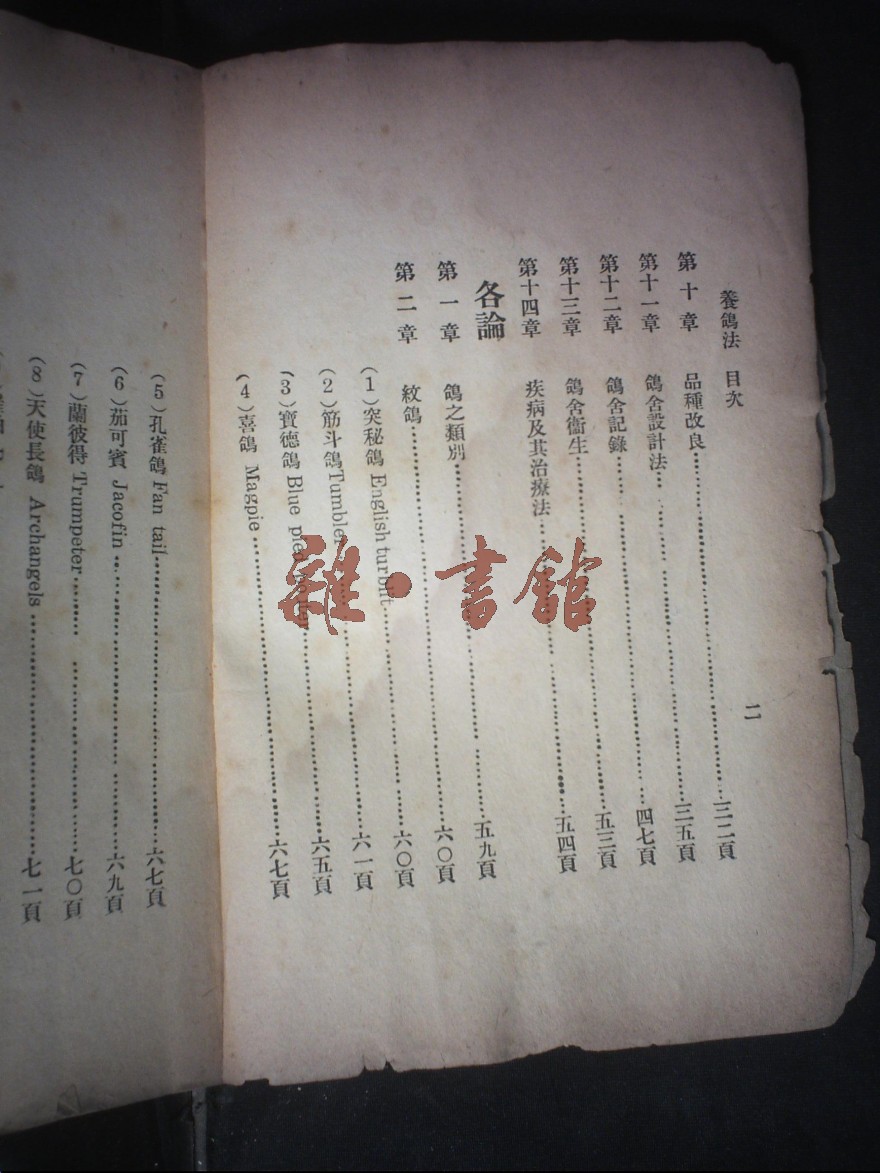 養鴿法 目次 二
第十章 品種改良……三二頁
第十一章 鴿舍設計法……三五頁
第十二章 鴿舍記錄……四七頁
第十三章 鴿舍衞生……五三頁
第十四章 疾病及其治療法……五四頁
各論
第一章 鴿之類別……五九頁
第二章 紋鴿……六〇頁
(1)突秘鴿 English turbit……六〇頁
(2)筋斗鴿 Tumbler……六一頁
(3)寶德鴿 Blue pied……六五頁
(4)喜鴿 Magpie……六七頁
(5)孔雀鴿 Fan tail……六七頁
(6)茄可賓 Jacofin……六九頁
(7)蘭彼得 Trumpeter……七〇頁
(8)天使長鴿 Archangels……七一頁
雜·書館